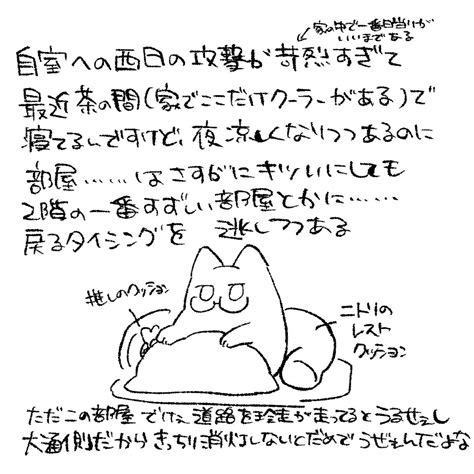 家の中で一番日当りが
いいまである
自室への西日の攻撃が苛烈すぎて
最近茶の間(家でここだけクーラーがある)で
寝てるんですけど、夜涼しくなりつつあるのに
部屋……はさすがにキツいにしても
2階の一番すずしい部屋とかに……
戻るタイミングを逃しつつある
推しのクッション
ニトリの
レスト
クッション
ただこの部屋でけぇ道路を珍走が走ってるとうるせぇし
大通側だからきっちり消灯しないとだめでうぜぇんだよな